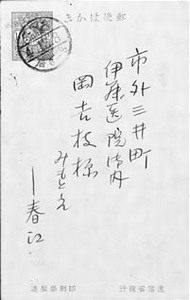 郵便はかき
市外三井町
伊藤医院御内
岡吉枝様
みもとえ
春江